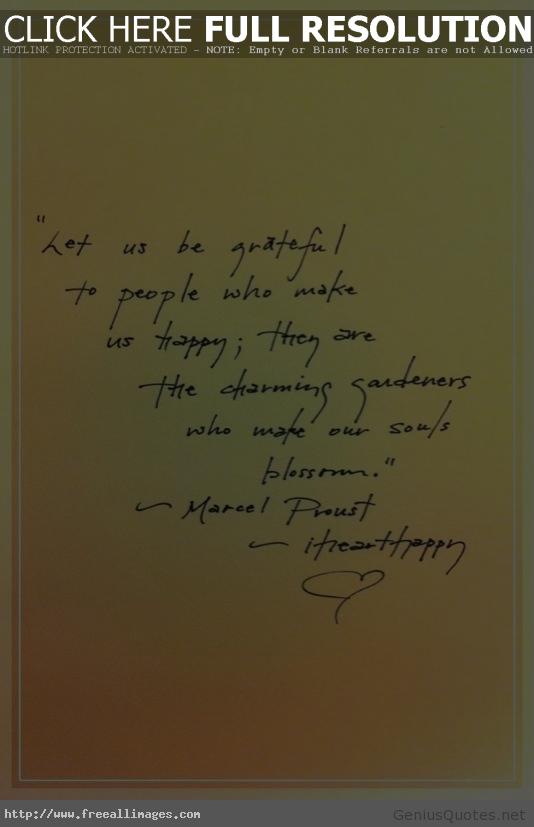 CLICK HERE FULL RESOLUTION
HOTLINK PROTECTION ACTIVATED - NOTE: Empty or Blank Referrals are not Allowed
"Let us be grateful
to people who make
us happy; they are
the charming gardeners
who make our souls
blossom."
~ Marcel Proust
~ iHeartHappy
http://www.freeallimages.com
GeniusQuotes.net